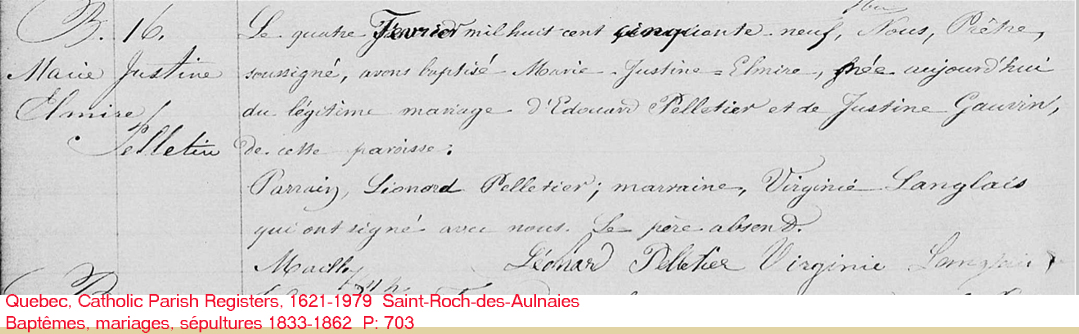 B. 16.
Marie Justine
Elmire
Pelletier
Le quatre Fevrier mil huit cent cinquante neuf, Nous, Prêtre,
soussigné, avons baptisé Marie-Justine-Elmire, née aujourd'hui
du légitime mariage d'Edouard Pelletier et de Justine Gauvin,
de cette paroisse:
Parrain, Léonard Pelletier; marraine, Virginie Langlais
qui ont signé avec nous. Le père absent.
Léonard Pelletier Virginie Langlais
B
Quebec, Catholic Parish Registers, 1621-1979 Saint-Roch-des-Aulnaies
Baptêmes, mariages, sépultures 1833-1862 P: 703